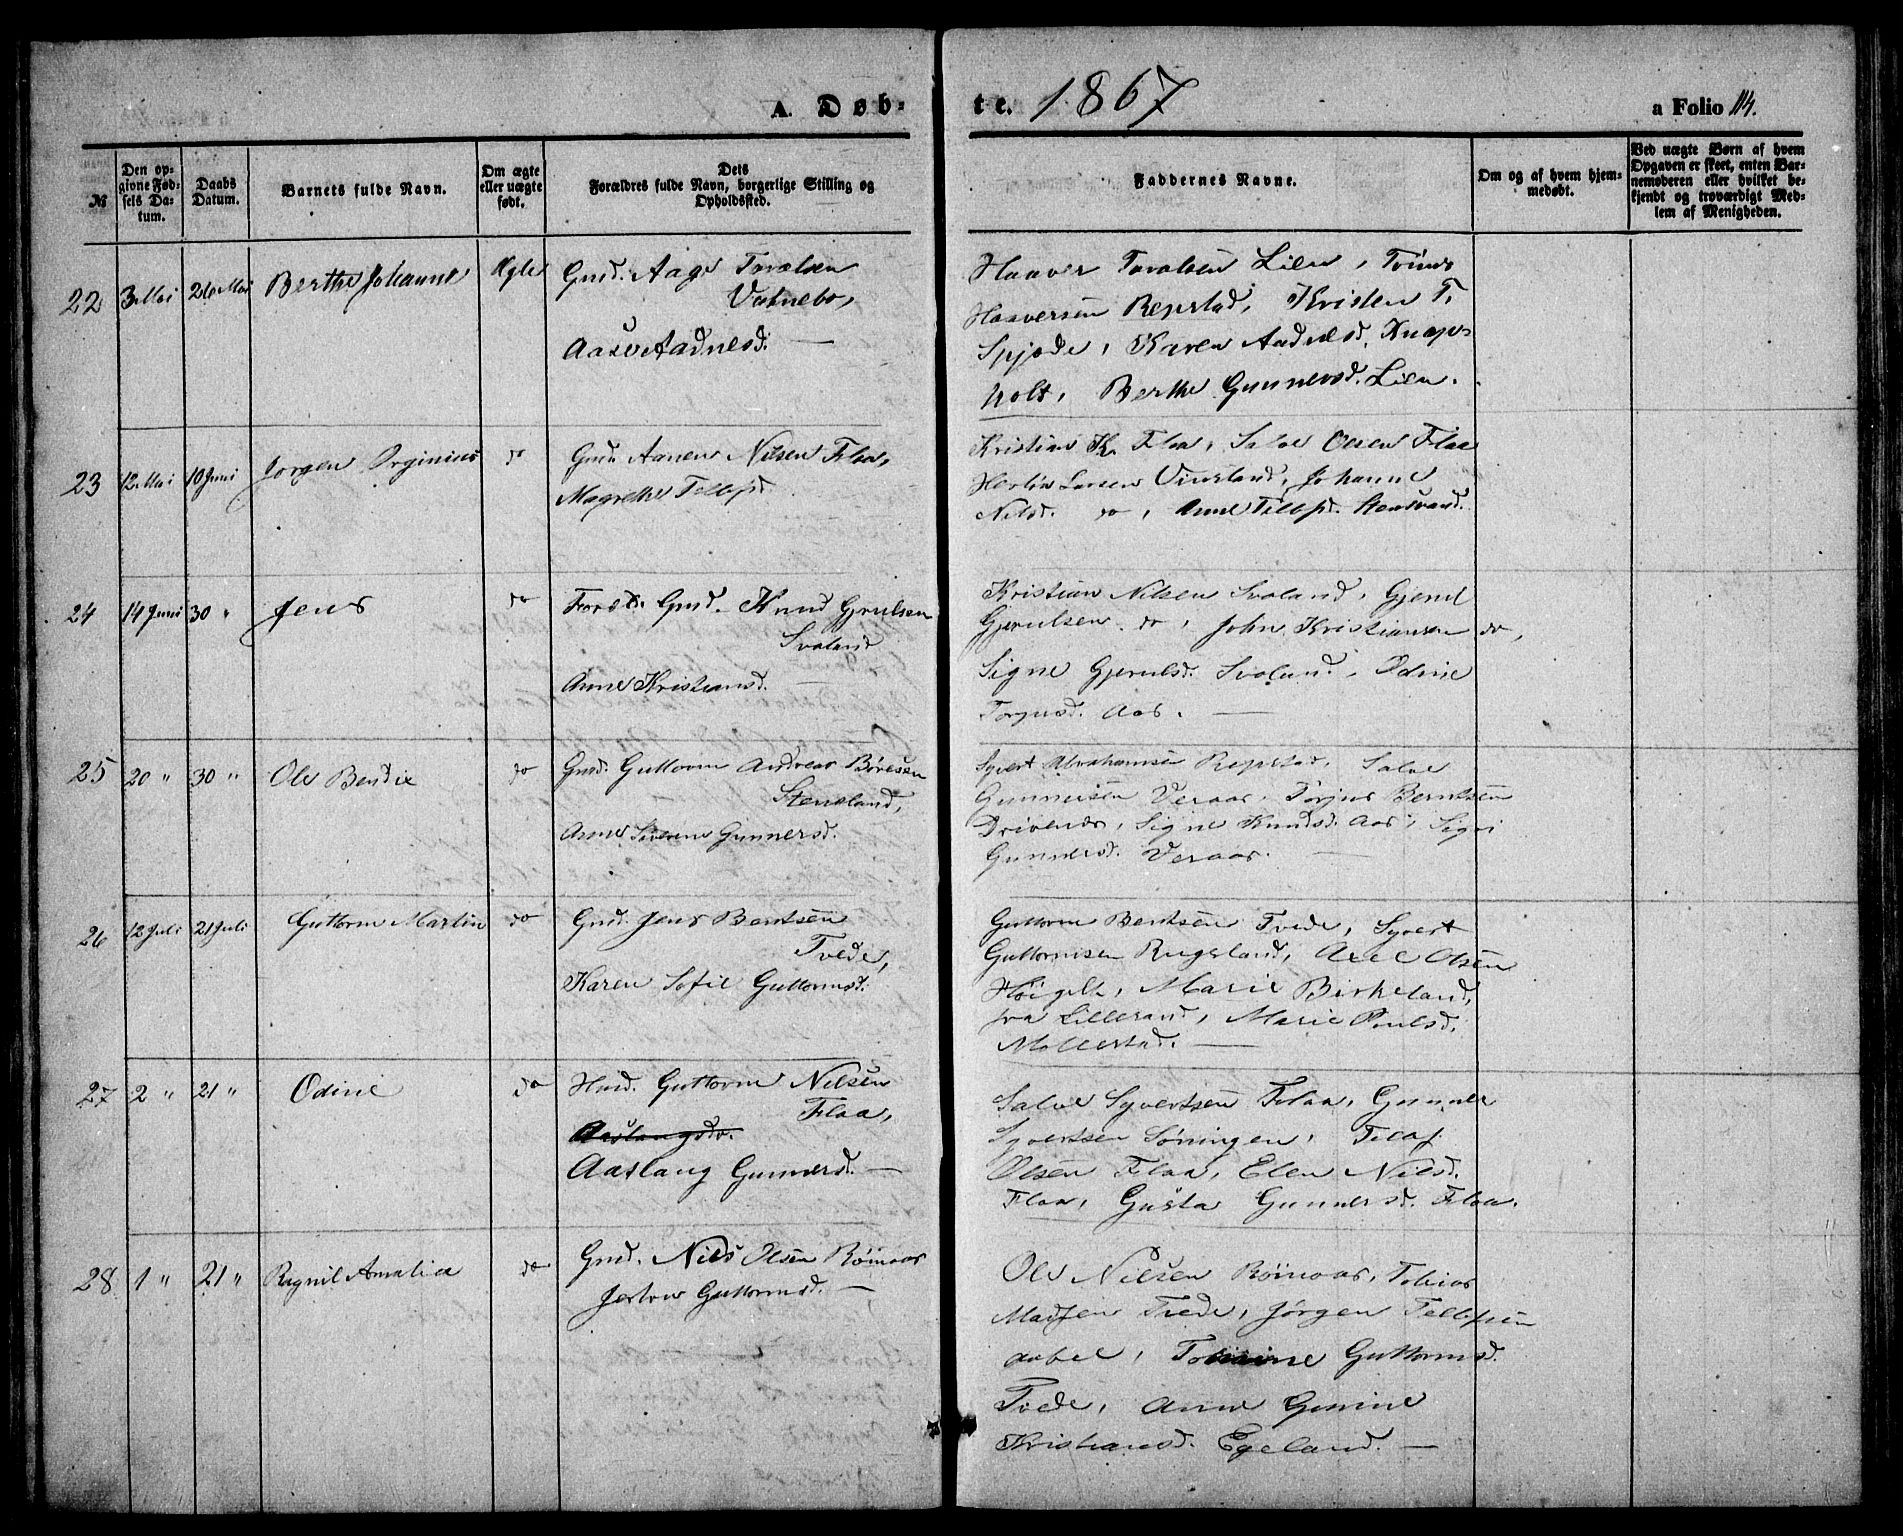 A. Døb-te. 1867
a Folio 114.
№
Den opgivne Fødsels Datum.
Daabs Datum.
Barnets fulde Navn.
Om ægte eller uægte født.
Dets Forældres fulde Navn, borgerlige Stilling og Opholdssted.
Faddernes Navne.
Om og af hvem hjemmedøbt.
Ved uægte Børn af hvem Opgaven er skeet, enten Barnemoderen eller hvilket bekjendt og troværdigt Medlem af Menigheden.
22 3 Mai 26 Mai Berthe Johanne Ægte
Gmd. Aage Toralsen
Vatnebo,
Aase Aadnesd. —
Haaver Toralsen Lien, Tønes
Haaversen Repstad, Kristen T.
Spjode, Karen Aadnesd. Knap-
holt, Berthe Gunnersd. Lien.
23 12 Mai 10 Juni Jørgen Orginius do
Gmd. Aanen Nilsen Flaa,
Magrethe Tellefsd.
Kristian K. Flaa, Salve Olsen Flaa
Larsen Vinsland, Johanne
Nilsd. do, Anne Tellefsd.
24 14 Juni 30 " Jens do
Gmd. Knud Gjerulsen
Svaland
Anne Kristiansd. —
Kristian Nilsen Svaland, Gjerul
Gjerulsen do, John Kristiansen do,
Signe Gjerulsd. Svaland, Odine
Torjusd. Aas. —
25 20 " 30 " Ole Bendix do
Gmd. Guttorm Andreas Børesen
Steneland,
Anne Severine Gunnersd.
Syvert Abrahamsen Repstad, Salve
Gunnersen Veraas, Torjus Berntsen
Drivenes, Signe Knudsd. Aas, Sigri
Gunnersd. Veraas. —
26 12 Juli 21 Juli Guttorm Martin do
Gmd. Jens Bentsen
Tvede,
Karen Sofie Guttormsd.
Guttorm Bentsen Tvede, Syvert
Guttormsen Rugsland, Axel Olsen
Høigilt, Marie Birkeland,
fra Lillesand, Marie Poulsd.
Mollestad. —
27 2 " 21 " Odine do
Husd. Guttorm Nilsen
Flaa,
Aaslangsdr.
Aaslang Gunnersd. —
Salve Syvertsen Flaa, Gunner
Syvertsen Søningen, Tellef
Olsen Flaa, Elen Nilsd.
Flaa, Gusta Gunnersd. Flaa.
28 1 " 21 " Ragnil Amalia do
Gmd. Niels Olsen Röinaas
Guttormsd. —
Ole Nielsen Röinaas, Tobias
Madsen Tvede, Jørgen Tellefsen
Aabel, Guttormsd.
Tvede, Anne Gunine
Kristiansd. Egeland. —